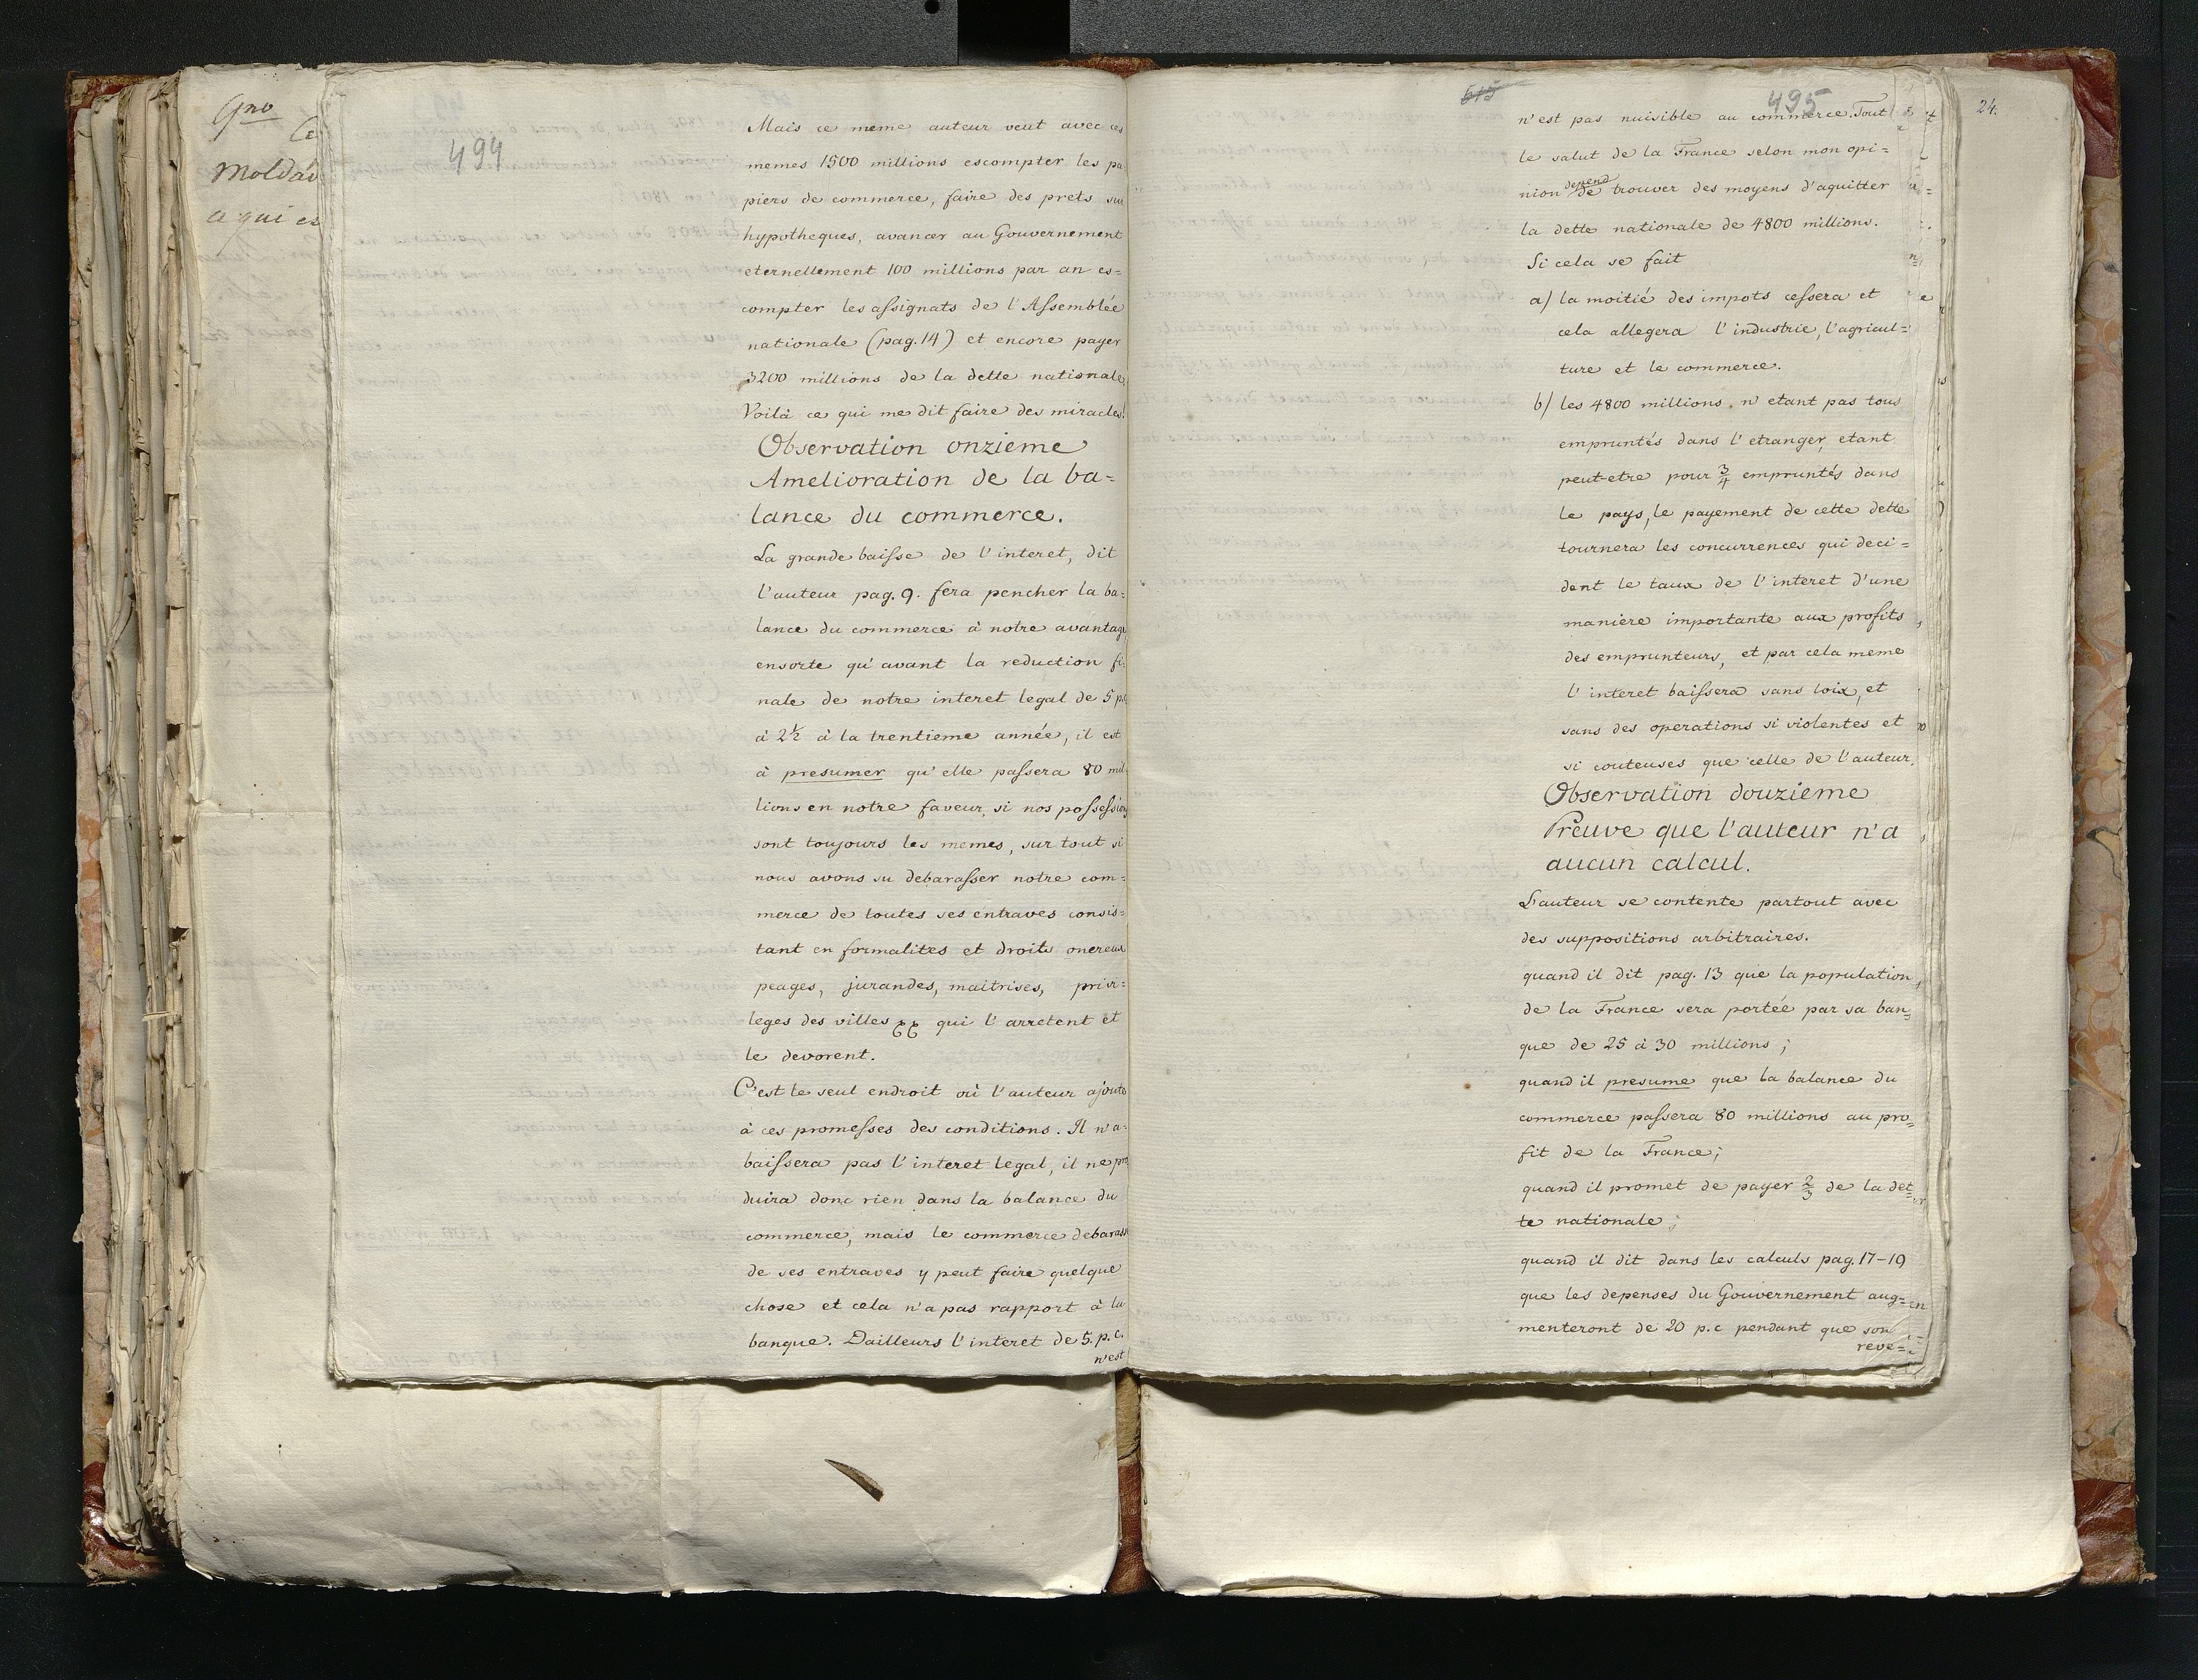 Gno
Ce
Moldav
a qui es
494
Mais ce meme auteur veut avec ces
memes 1500 millions escompter les pa
piers de commerce, faire des prets sur
hypotheques, avancer au Gouvernement
eternellement 100 millions par an es=
compter les assignats de l'Assemblée
nationale (pag. 14) et encore payer
3200 millions de la dette nationale,
Voilà ce qui me dit faire des miracles!
Observation onzieme
Amelioration de la ba=
lance du commerce.
La grande baisse de l'interet, dit
l'auteur pag. 9. fera pencher la ba=
lance du commerce à notre avantage
ensorte qu'avant la reduction fi
nale de notre interet legal de 5 pc
à 2½ à la trentieme année, il est
à presumer qu'elle passera 80 mil
lions en notre faveur, si nos possessions
sont toujours les memes, sur tout si
nous avons su debarasser notre com=
merce de toutes ses entraves consis=
tant en formalites et droits onereux
peages, jurandes, maitrises, privi=
leges des villes qui l'arretent et
le devorent.
C'est le seul endroit où l'auteur ajoute
à ces promesses des conditions. Il n'a=
baissera pas l'interet legal, il ne pro
duira donc rien dans la balance du
commerce, mais le commerce debarassé
de ses entraves y peut faire quelque
chose et cela n'a pas rapport à la
banque. Dailleurs l'interet de 5. p.c.
n'est
615
495
24.
n'est pas nuisible au commerce. Tout
le salut de la France selon mon opi=
nion depend de trouver des moyens d'aquitter
la dette nationale de 4800 millions.
Si cela se fait
a) la moitié des impots cessera et
cela allegera l'industrie, l'agricul=
ture et le commerce.
b) les 4800 millions n'etant pas tous
empruntés dans l'etranger, etant
peut-etre pour 3/4 empruntés dans
le pays, le payement de cette dette
tournera les concurrences qui deci=
dent le taux de l'interet d'une
maniere importante aux profits
des emprunteurs, et par cela meme
l'interet baissera sans loix, et
sans des operations si violentes et
si couteuses que celle de l'auteur.
Observation douzieme
Preuve que l'auteur n'a
aucun calcul.
L'auteur se contente partout avec
des suppositions arbitraires.
quand il dit pag. 13 que la population
de la France sera portée par sa ban=
que de 25 à 30 millions;
quand il presume que la balance du
commerce passera 80 millions au pro=
fit de la France;
quand il promet de payer 2/3 de la det=
te nationale;
quand il dit dans les calculs pag. 17-19
que les depenses du Gouvernement aug=
menteront de 20 p.c pendant que son
reve=